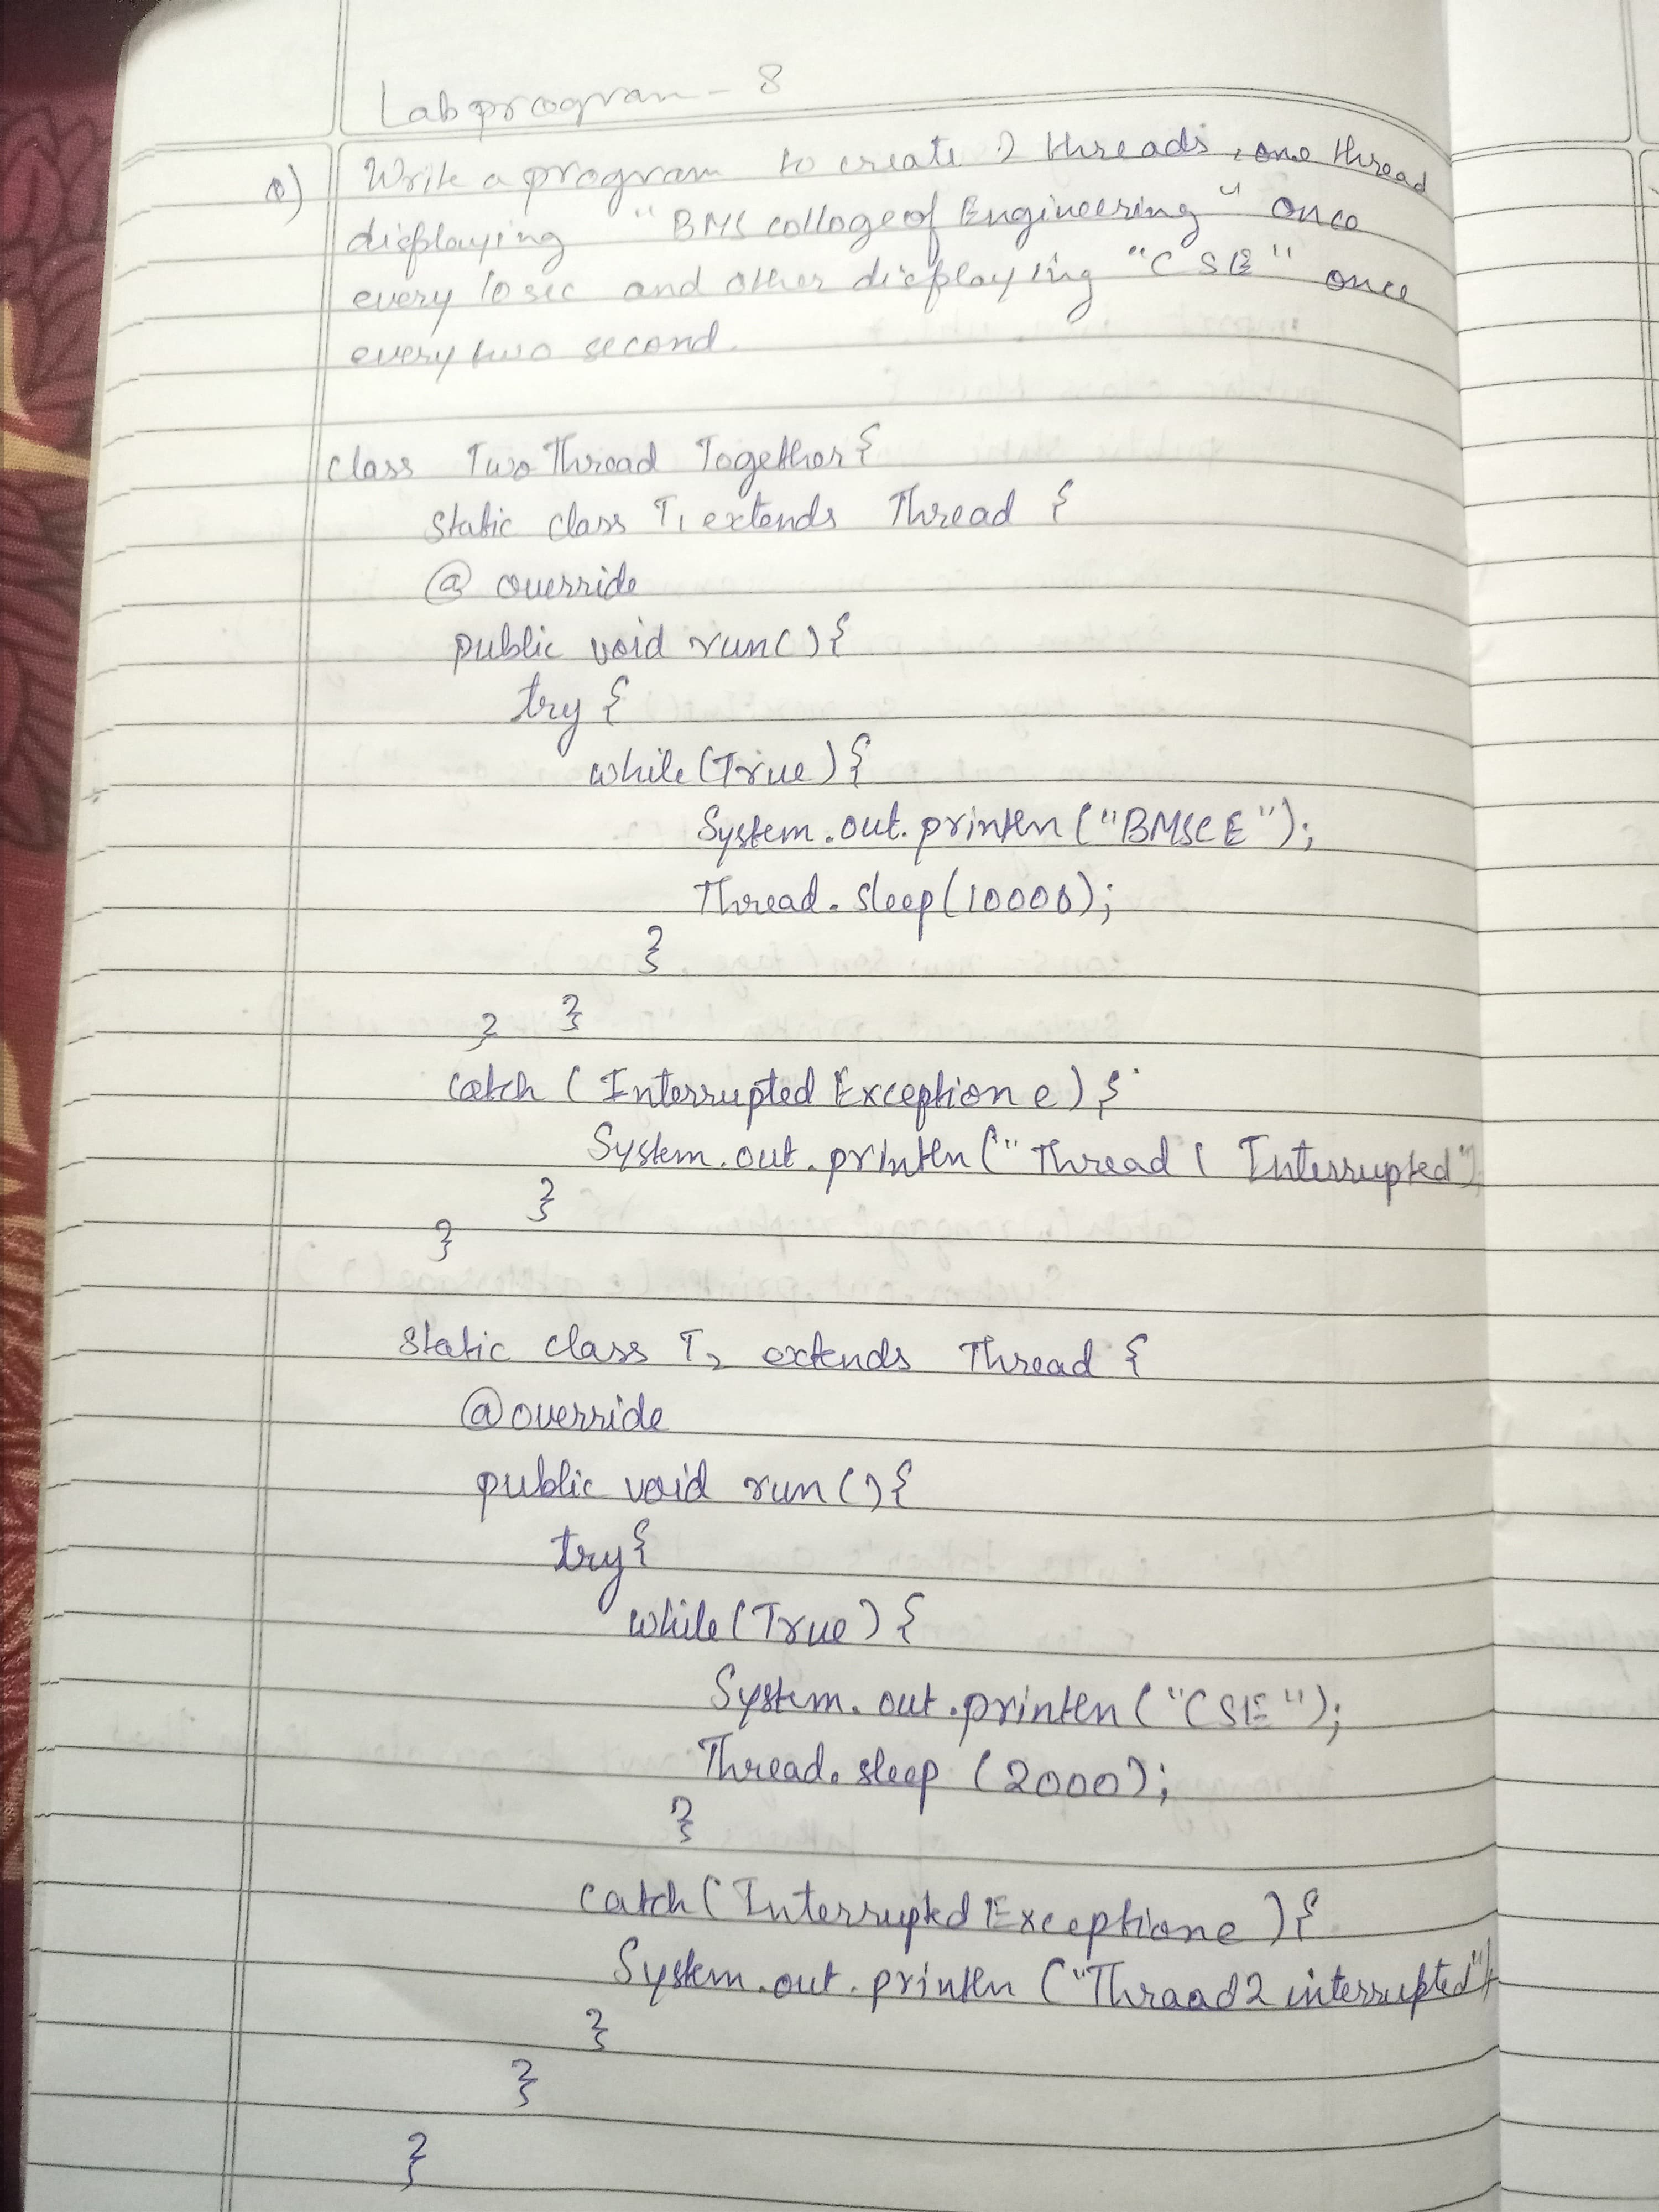 Lab program - 8
Q) Write a program to create 2 threads, one thread
displaying "BMS college of Engineering" once
every 10 sec and other displaying "CSE" once
every two second.
class TwoThread Together {
static class T1 extends Thread {
@ override
public void run() {
try {
while (True) {
System.out.println ("BMSCE");
Thread.sleep (10000);
}
} }
catch (Interrupted Exception e) {
System.out.println ("Thread 1 Interrupted")
}
}
static class T2 extends Thread {
@override
public void run () {
try {
while (True) {
System.out.println ("CSE");
Thread.sleep (2000);
}
catch (Interrupted Exception e) {
System.out.println ("Thraad 2 interrupted")
}
}
}